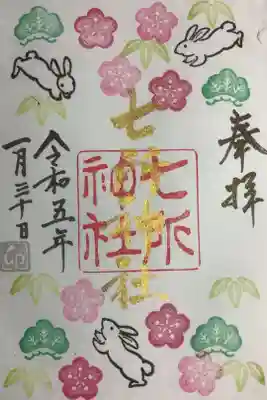 奉拝
七所神社
七所
神社
令和五年
一月三十日
卯